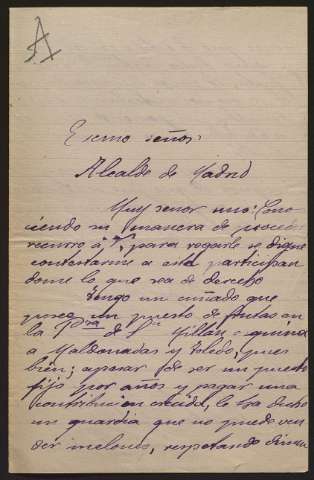 A
Excmo señor:
Alcalde de Madrid
Muy señor mio: Cono
ciendo su manera de proceder
recurro á V, para rogarle se digne
contestarme a esta participan
dome lo que sea de derecho
Tengo un cuñado que
posee un puesto de frutas en
la Pza de Sn Millan esquina
a Maldonadas y Toledo, pues
bien; apesar de ser un puesto
fijo por años y pagar una
contribucion crecida, le ha dicho
un guardia que no puede ven
der melones, respetando